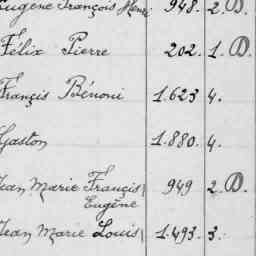 Eugène François Henri 948. 2. D.
Félix Pierre 202. 1. D.
Francis Bénoni 1.623 4.
Gaston 1.880. 4.
Jean Marie Francis 949 2. D.
Eugène
Jean Marie Louis 1.493. 3.